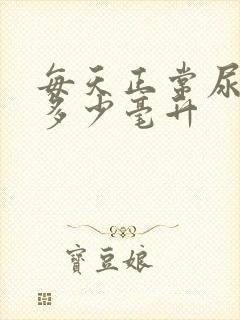 每天正常尿
多少毫升
寶豆娘